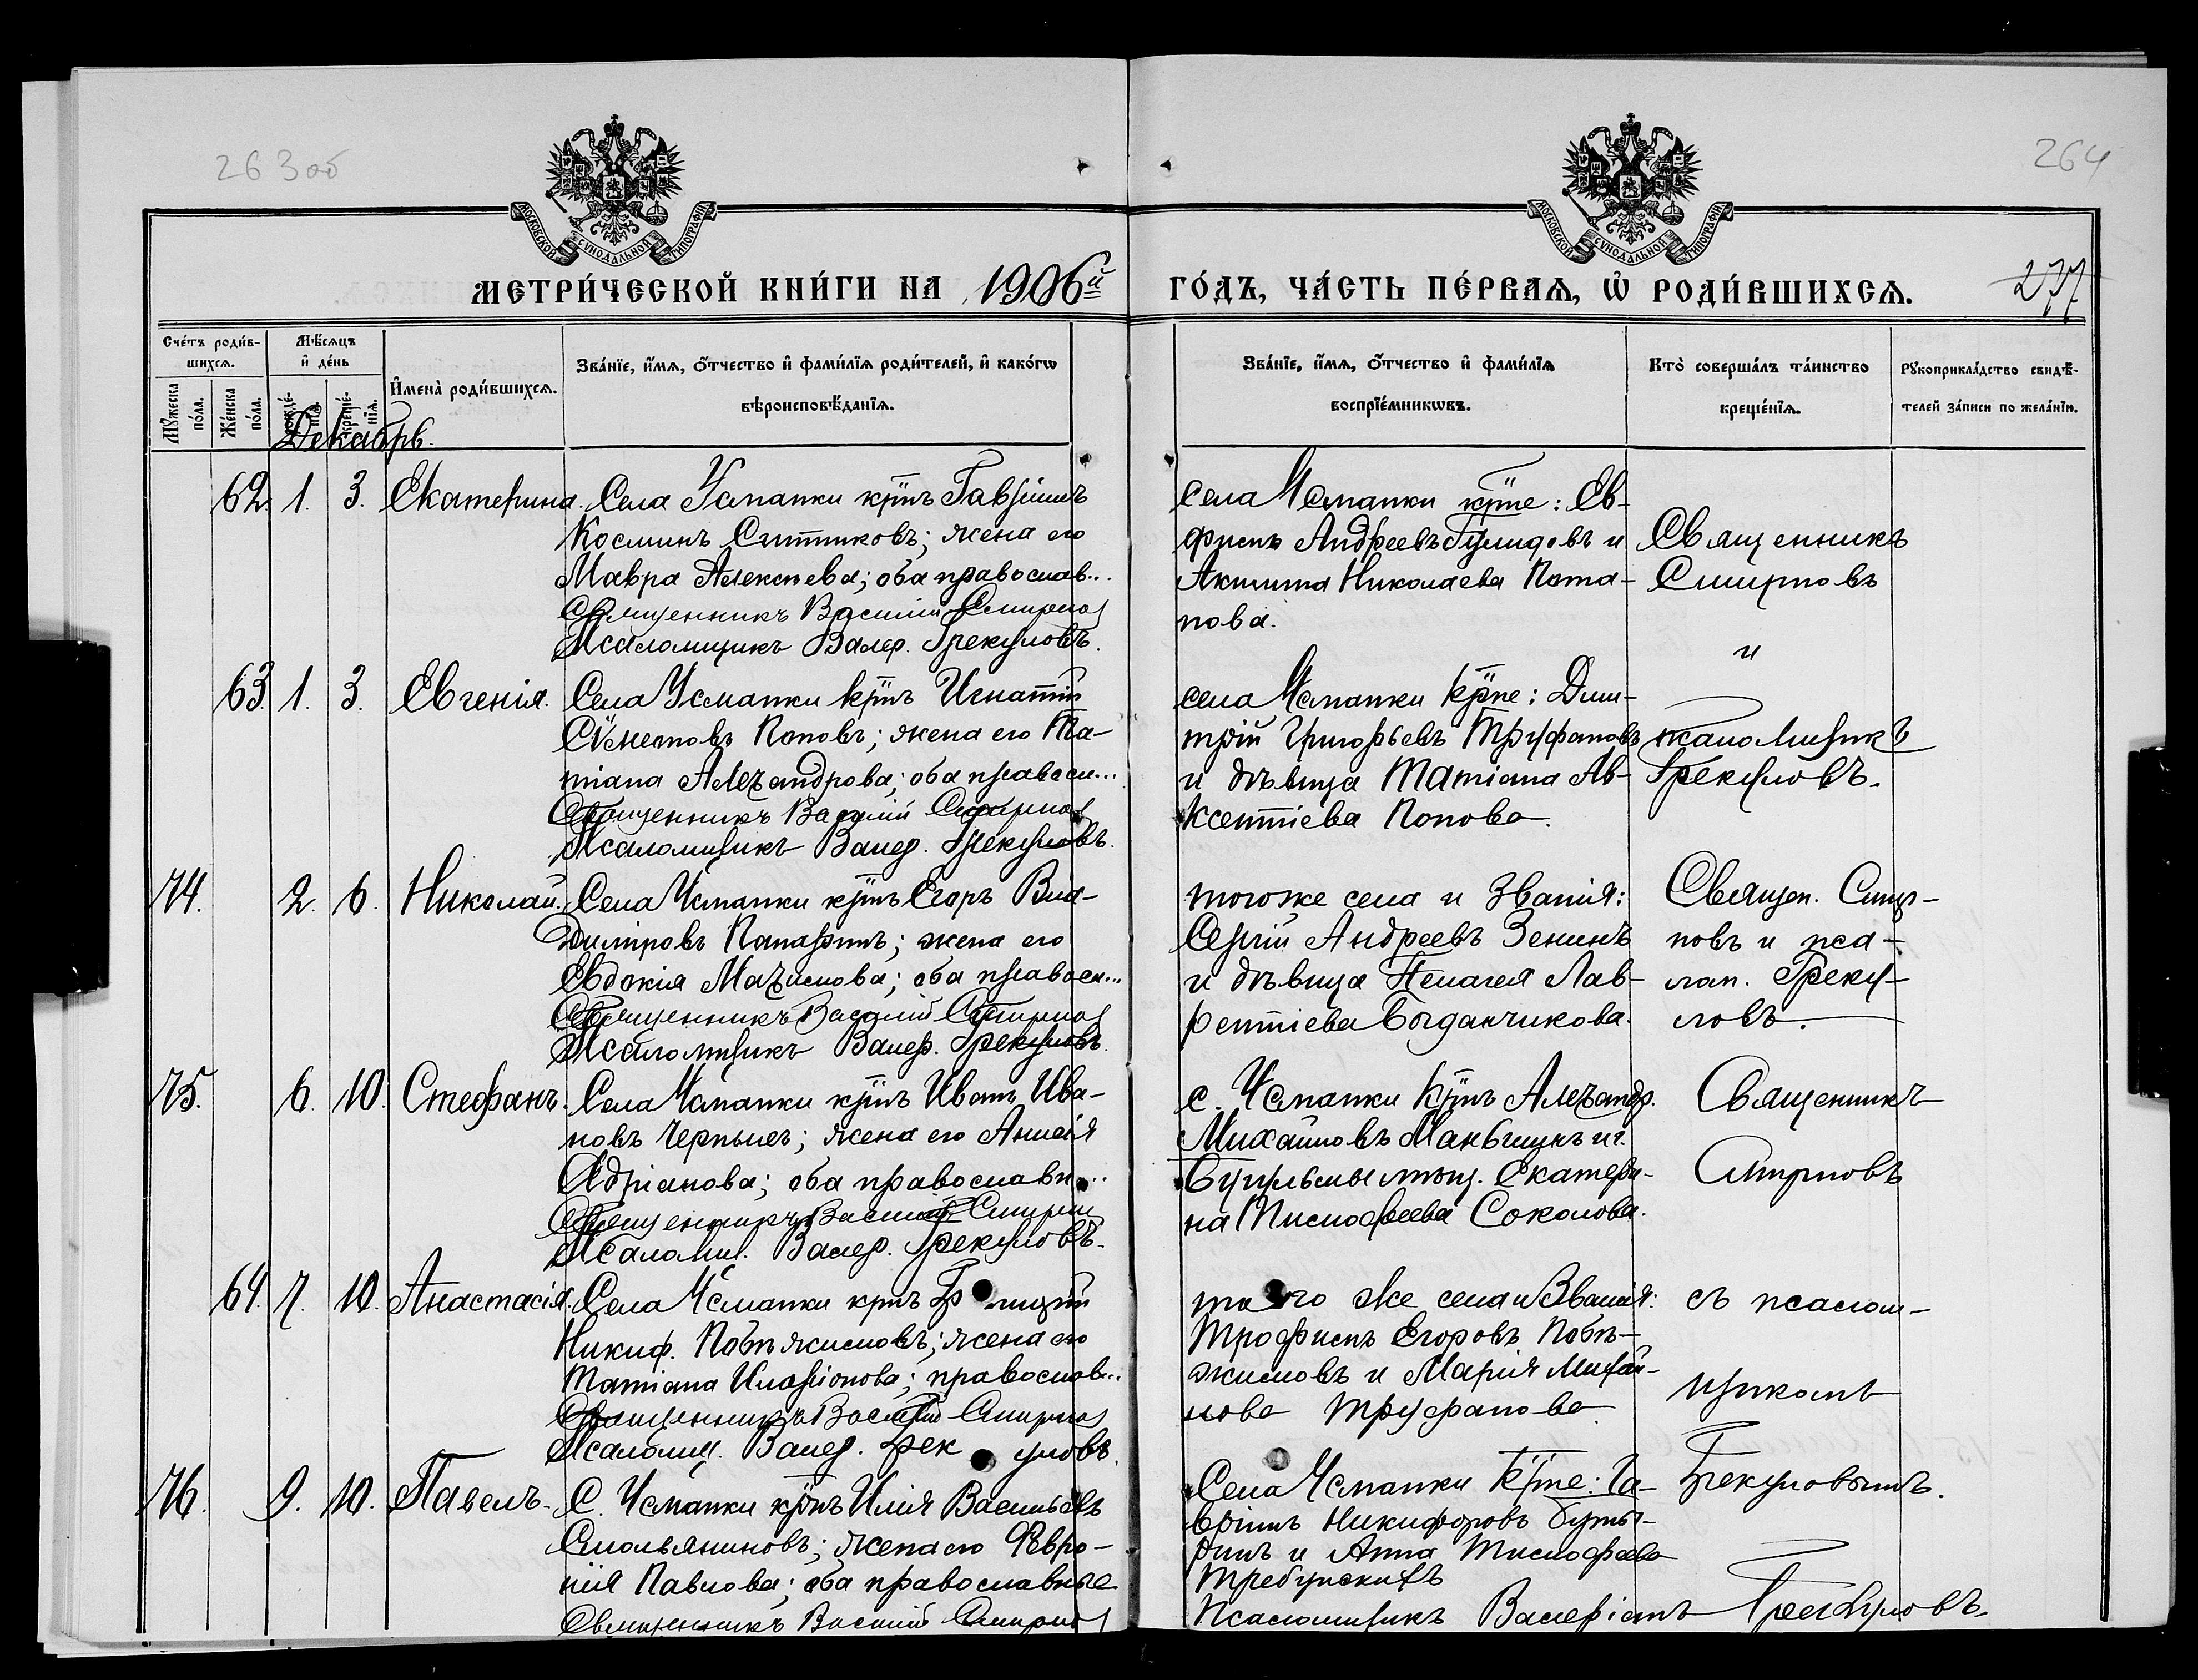 263об
264
МОСКОВСКОЙ СѴНОДАЛЬНОЙ ТИПОГРАФІИ
МОСКОВСКОЙ СѴНОДАЛЬНОЙ ТИПОГРАФІИ
МЕТРИ́ЧЕСКОЙ КНИ́ГИ НА 1906й
ГО́ДЪ, ЧА́СТЬ ПЕ́РВАѦ, Ѡ҆ РОДИ́ВШИХСѦ.
277
Сче́тъ роди́в-
шихсѧ.
Мꙋ́жеска
по́ла.
Же́нска
по́ла.
Мѣ́сѧцъ
и҆ де́нь
рожде́-
нїѧ.
креще́-
нїѧ.
И҆мена̀ роди́вшихсѧ.
Зва́нїе, и҆́мѧ, ѻ҆́тчество и҆ фами́лїѧ роди́телей, и҆ како́гѡ
вѣроисповѣ́данїѧ.
Зва́нїе, и҆́мѧ, ѻ҆́тчество и҆ фами́лїѧ
воспрїе́мникѡвъ.
Кто̀ соверша́лъ та́инство
креще́нїѧ.
Рꙋкоприкла́дство свидѣ́-
телей за́писи по жела́нїю.
Декабрь.
62. 1. 3. Екатерина. Села Усманки крнъ Гавріилъ
Косминъ Ситниковъ; жена его
Мавра Алексѣева; оба православ...
Священникъ Василій Смирнов
Псаломщикъ Валер. Грекуловъ.
Села Усманки крне: Ев-
фимъ Андреевъ и
Акилина Николаева Пота-
пова.
Священникъ
Смирновъ
и
63. 1. 3. Евгенія. Села Усманки крнъ Игнатій
Поповъ; жена его Та-
тіана Алеѯандрова; оба правосл...
Священникъ Василій Смирнов
Псаломщикъ Валер. Грекуловъ.
села Усманки крне: Дими-
трій Григорьевъ Труфановъ
и дѣвица Татіана Ав-
ксентіева Попова.
псаломщикъ
Грекуловъ.
74. 2. 6. Николай. Села Усманки крнъ Егоръ Вла-
диміровъ Панафинъ; жена его
Евдокія Маѯимова; оба правосл...
Священникъ Василій Смирнов
Псаломщикъ Валер. Грекуловъ.
тогоже села и званія:
Сергій Андреевъ Зенинъ
и дѣвица Пелагея Лав-
рентіева Богданчикова.
Священ. Смир-
новъ и пса-
лом. Греку-
ловъ.
75. 6. 10. Стефанъ. Села Усманки крнъ Иванъ Ива-
новъ Черныхъ; жена его Анисія
Адріанова; оба православн...
Священникъ Василій Смирнов
Псаломщ. Валер. Грекуловъ.
с. Усманки крнъ Алеѯандр.
Михайловъ Маньшинъ и г.
Бугульмы мѣщ. Екатери-
на Тимофеева Соколова.
Священникъ
Смирновъ
64. 7. 10. Анастасія. Села Усманки крнъ
Никиф. Побѣжимовъ; жена его
Татіана Иларіонова; православ...
Священникъ Василій Смирнов
Псаломщ. Валер. Грекуловъ.
того же села и званія:
Трофимъ Егоровъ Побѣ-
жимовъ и Марія Михай-
лова Труфанова
съ псалом-
щикомъ
Грекуловымъ.
76. 9. 10. Павелъ. С. Усманки крнъ Илія Васильевъ
Смольяниновъ; жена его Февро-
нія Павлова; оба православные
Священникъ Василій Смирнов
Села Усманки крне: Га-
вріилъ Никифоровъ Буты-
ринъ и Анна Тимофеева
Требунскихъ
Псаломщикъ Валеріанъ Грекуловъ.